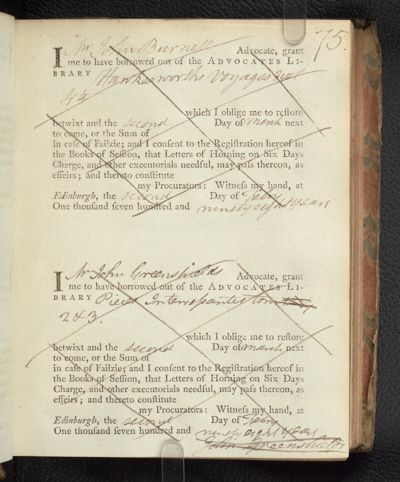 75.
I Mr John Burnett Advocate, grant
me to have borrowed out of the ADVOCATES LI-
BRARY Hawkesworths Voyages vol
which I oblige me to reſtore
betwixt and the second Day of March next
to come, or the Sum of
in caſe of Failzie; and I conſent to the Regiſtration hereof in
the Books of Seſſion, that Letters of Horning on Six Days
Charge, and other executorials needful, may paſs thereon, as
effeirs; and thereto conſtitute
my Procurators: Witneſs my hand, at
Edinburgh, the second Day of
One thouſand ſeven hundred and ninety eight years
I Mr John Greenshields Advocate, grant
me to have borrowed out of the ADVOCATES LI-
BRARY Pieces
2 & 3.
which I oblige me to reſtore
betwixt and the second Day of March next
to come, or the Sum of
in caſe of Failzie; and I conſent to the Regiſtration hereof in
the Books of Seſſion, that Letters of Horning on Six Days
Charge, and other executorials needful, may paſs thereon, as
effeirs; and thereto conſtitute
my Procurators: Witneſs my hand, at
Edinburgh, the second Day of
One thouſand ſeven hundred and ninety eight years
John Greenshields